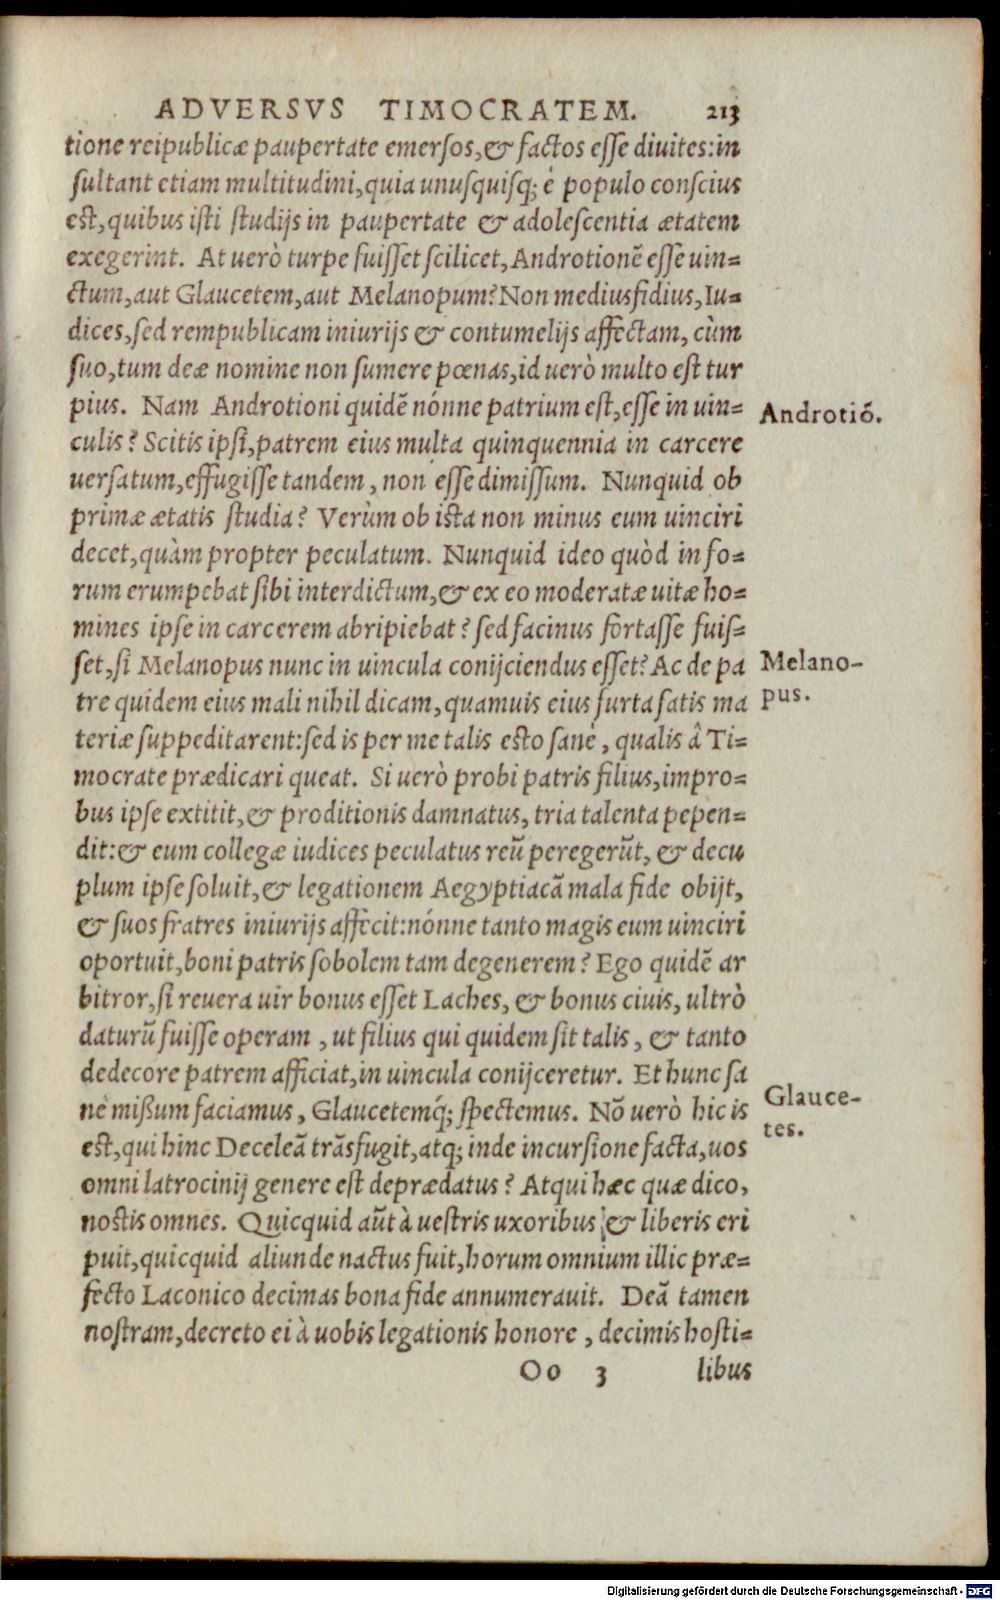 ADVERSVS TIMOCRATEM. 213
tione reipublicæ paupertate emersos,& factos esse diuites:in
sultant etiam multitudini,quia unusquisq; è populo conscius
est,quibus isti studijs in paupertate & adolescentia ætatem
exegerint. At uerò turpe fuisset scilicet, Androtionē esse uin=
ctum,aut Glaucetem,aut Melanopum? Non mediusfidius,Iu=
dices,sed rempublicam iniurijs & contumelijs affectam, cùm
suo,tum deæ nomine non sumere pœnas,id uerò multo est tur
pius. Nam Androtioni quidē nónne patrium est,esse in uin=
Androtiō.
culis? Scitis ipsi,patrem eius multa quinquennia in carcere
uersatum,effugisse tandem, non esse dimissum. Nunquid ob
primæ ætatis studia? Verùm ob ista non minus eum uinciri
decet,quàm propter peculatum. Nunquid ideo quòd in fo=
rum erumpebat sibi interdictum,& ex eo moderatæ uitæ ho=
mines ipse in carcerem abripiebat? sed facinus fortasse fuis=
set,si Melanopus nunc in uincula conijciendus esset? Ac de pa
Melano-
tre quidem eius mali nihil dicam,quamuis eius furta satis ma
pus.
teriæ suppeditarent:sed is per me talis esto sanè, qualis â Ti=
mocrate prædicari queat. Si uerò probi patris filius,impro=
bus ipse extitit,& proditionis damnatus, tria talenta pepen=
dit:& eum collegæ iudices peculatus reū peregerūt, & decu
plum ipse soluit,& legationem Aegyptiacā mala fide obijt,
& suos fratres iniurijs affecit:nónne tanto magis eum uinciri
oportuit,boni patris sobolem tam degenerem? Ego quidē ar
bitror,si reuera uir bonus esset Laches, & bonus ciuis, ultrò
daturū fuisse operam, ut filius qui quidem sit talis, & tanto
dedecore patrem afficiat,in uincula conijceretur. Et hunc sa
nè mißum faciamus, Glaucetemq́; spectemus. Nō uerò hic is
Glauce-
est,qui hinc Deceleā trāsfugit,atq; inde incursione facta,uos
tes.
omni latrocinij genere est deprædatus? Atqui hæc quæ dico,
nostis omnes. Quicquid aūt à uestris uxoribus & liberis eri
puit,quicquid aliunde nactus fuit,horum omnium illic præ=
fecto Laconico decimas bona fide annumerauit. Deā tamen
nostram,decreto ei à uobis legationis honore, decimis hosti=
Oo 3 libus
Digitalisierung gefördert durch die Deutsche Forschungsgemeinschaft - DFG